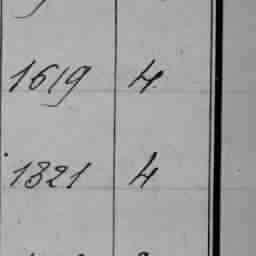 1619 4
1321 4